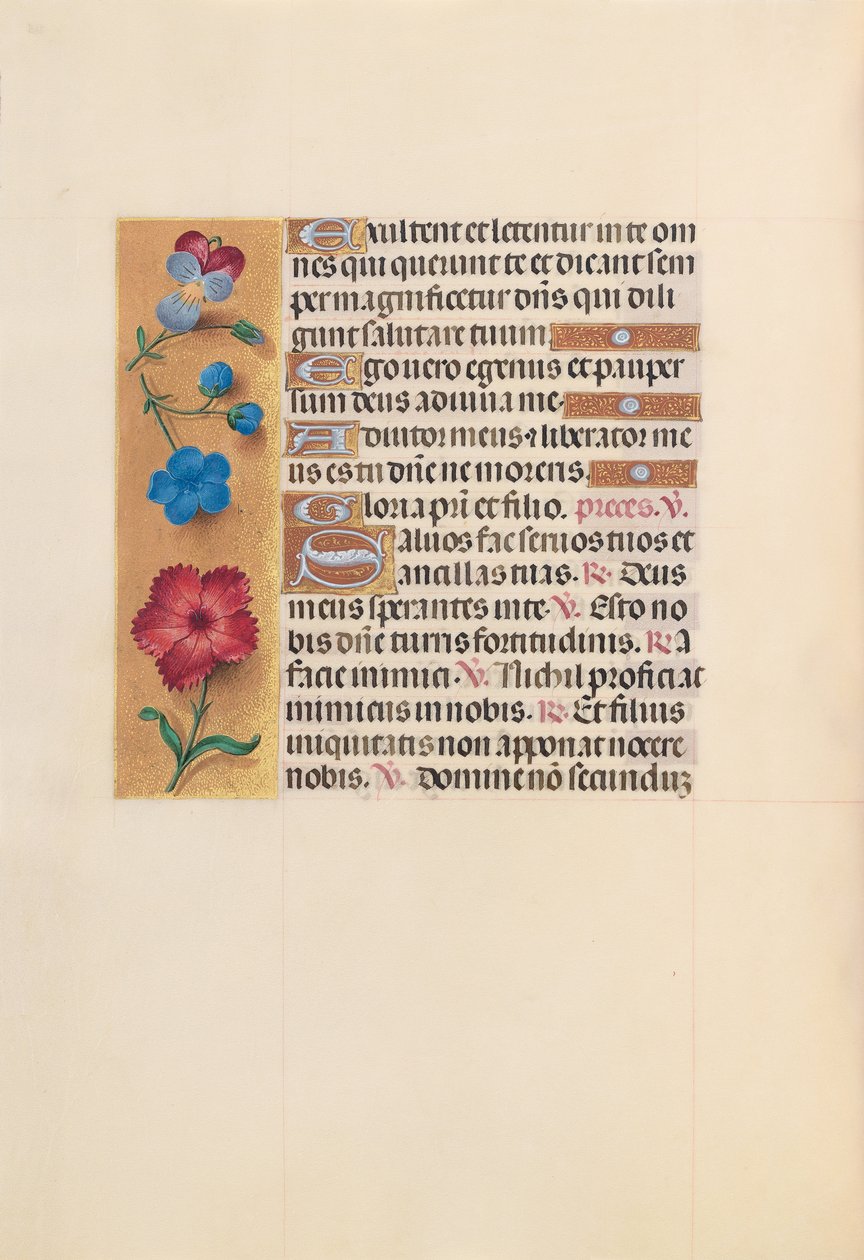 Exultent et letentur in te om
nes qui querunt te et dicant sem
per magnificetur dñs qui dili
gunt salutare tuum.
Ego vero egenus et pauper
sum deus adiuva me.
Adiutor meus ⁊ liberator me
us es tu dñe ne moreris.
Gloria pr̃i et filio. preces. V̇.
Salvos fac servos tuos et
ancillas tuas. R̃. Deus
meus sperantes in te. V̇. Esto no
bis dñe turris fortitudinis. R̃. A
facie inimici. V̇. Nichil proficiat
inimicus in nobis. R̃. Et filius
iniquitatis non apponat nocere
nobis. V̇. Domine nõ secunduȝ